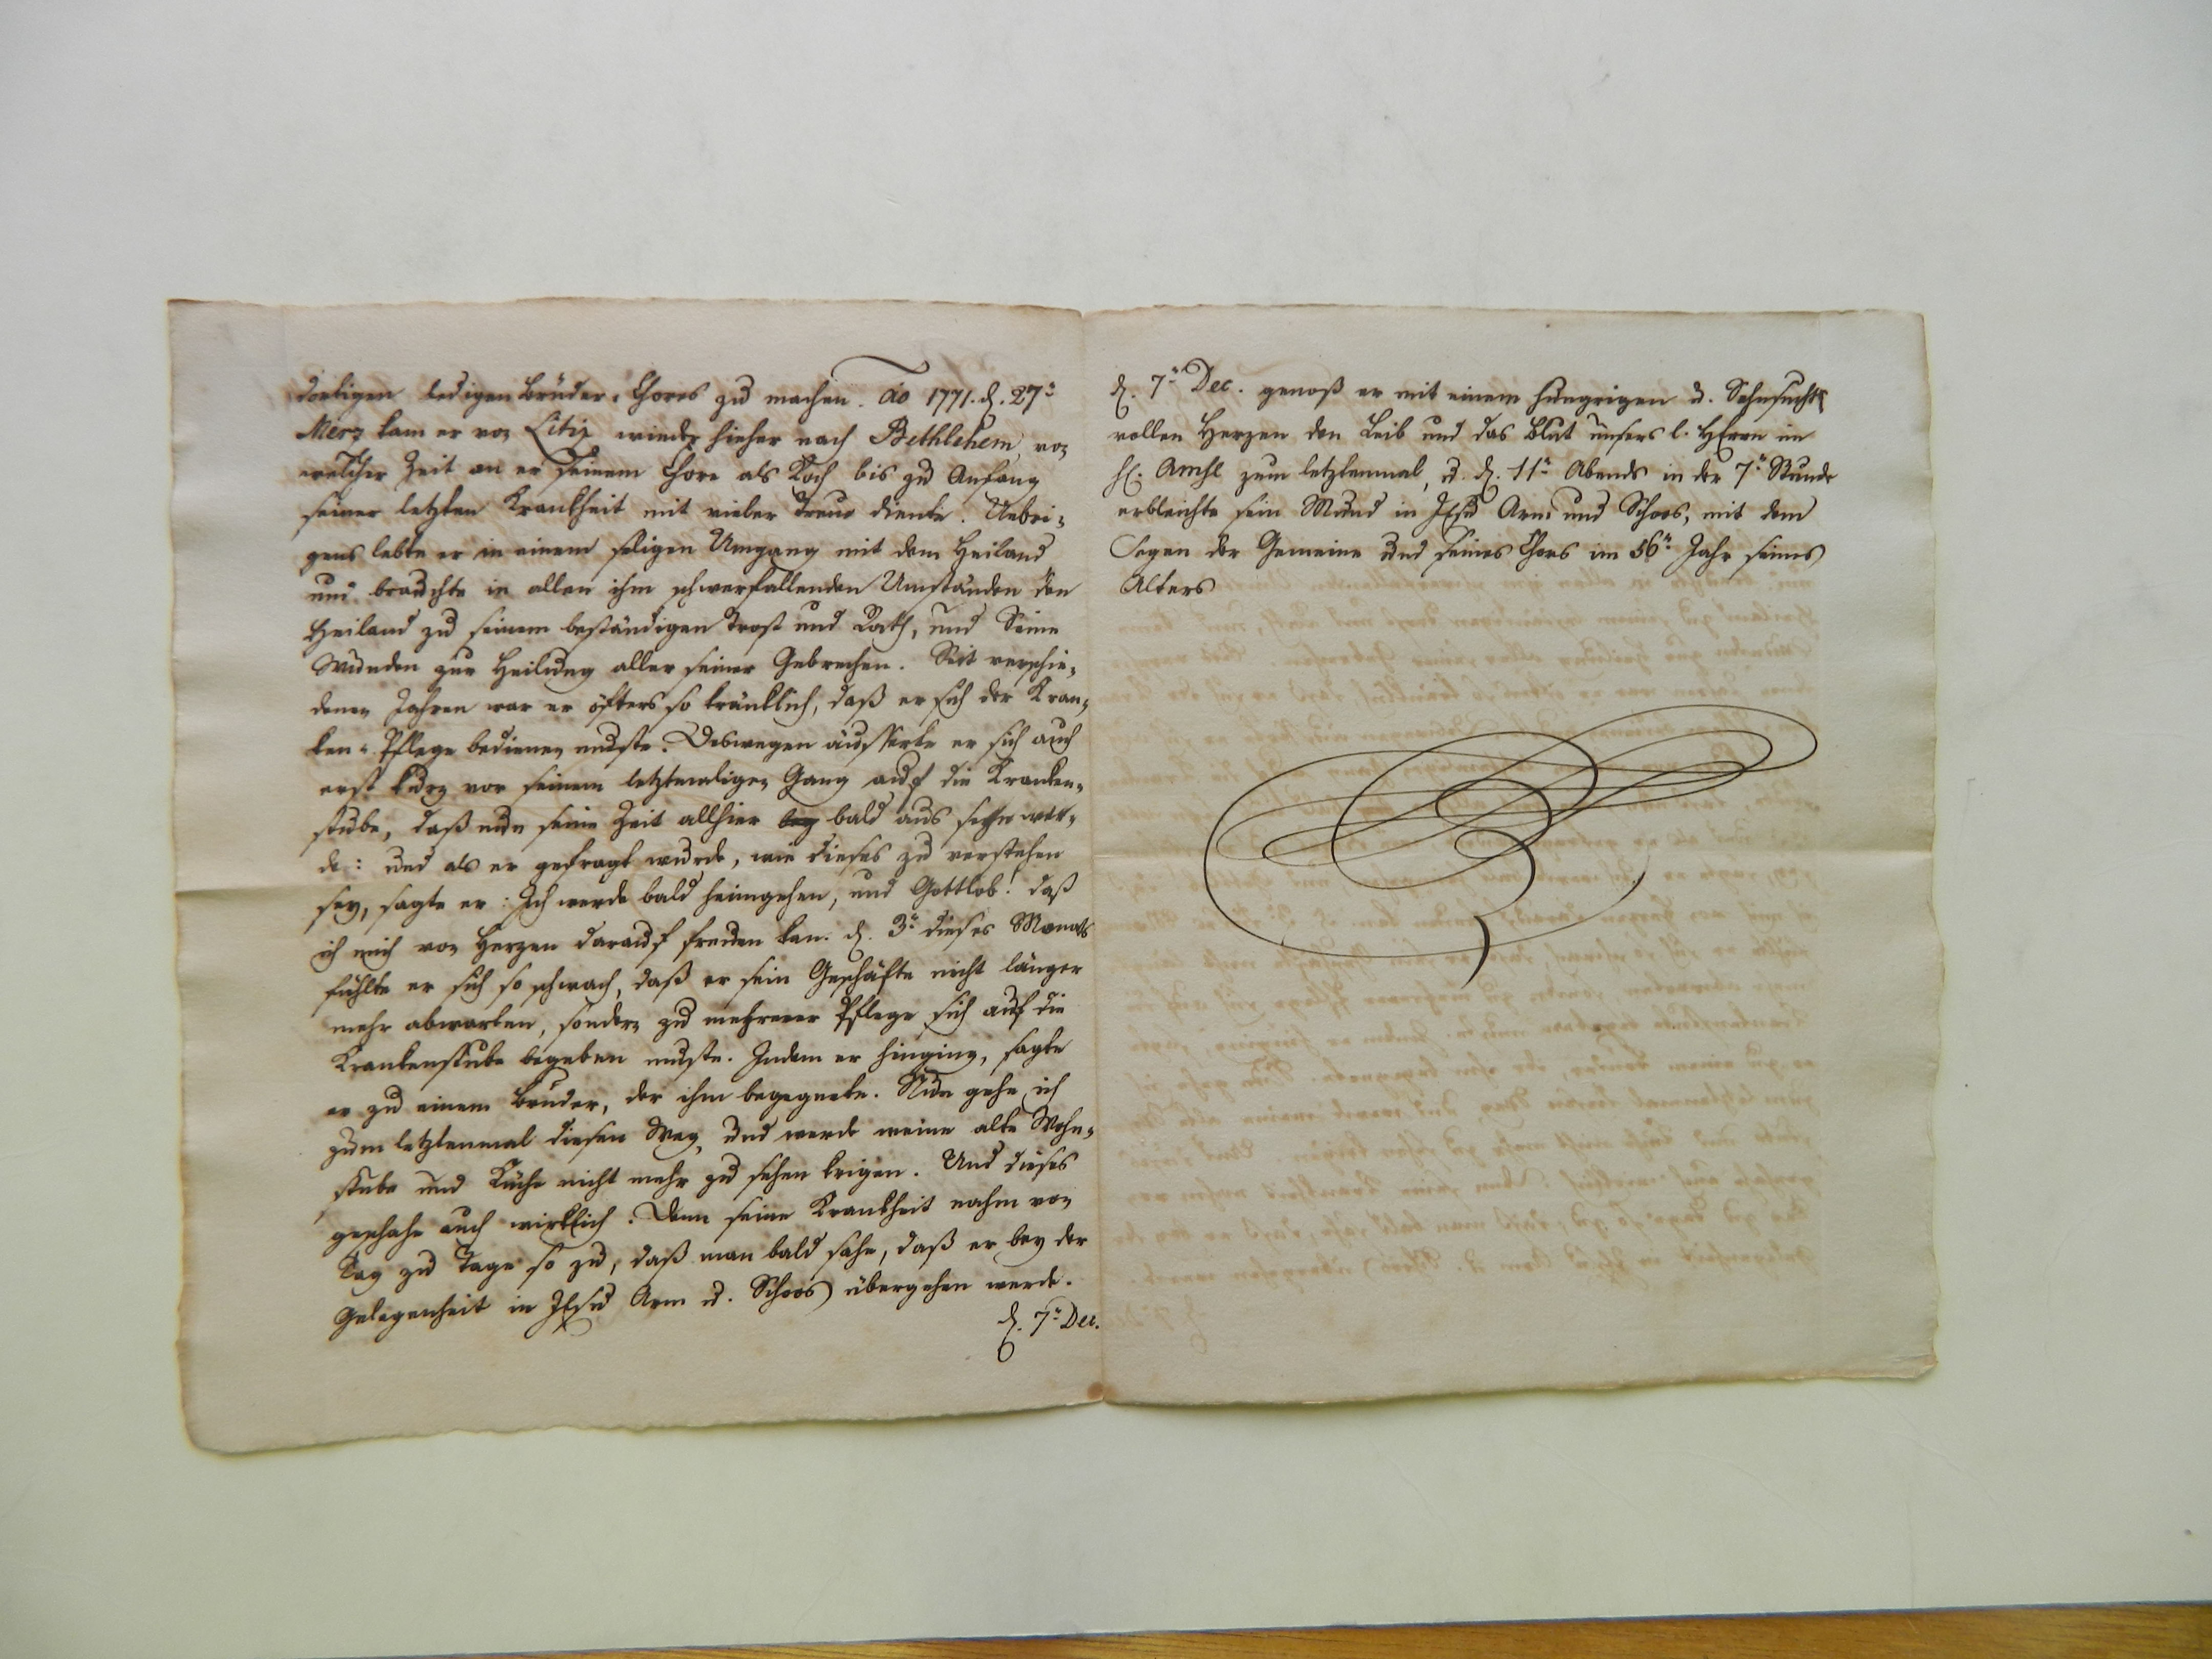 dortigen ledigen Brüder-Chores zu machen. Ao 1771. d. 27n
Merz kam er von Litiz wieder hieher nach Bethlehem, von
welcher Zeit an er seinem Chore als Koch bis zu Anfang
seiner letzten Krankheit mit vieler Treue diente. Uebri-
gens lebte er in einem seligen Umgang mit dem Heiland
und brauchte in allen ihm schwerfallenden Umständen den
Heiland zu seinem beständigen Trost und Rath, und Seine
Wunden zur Heilung aller seiner Gebrechen. Seit verschie-
denen Jahren war er öfters so kränklich, daß er sich der Kran-
ken-Pflege bedienen muste. Deswegen äusserte er sich auch
erst kurz vor seinem letztmaligen Gang auf die Kranken-
stube, daß nun seine Zeit allhier bald aus seyn wer-
de: und als er gefragt wurde, wie dieses zu verstehen
sey, sagte er: Ich werde bald heimgehen, und Gottlob! daß
ich mich von Herzen darauf freuen kan. d. 3n dieses Monats
fühlte er sich so schwach, daß er sein Geschäfte nicht länger
mehr abwarten, sondern zu mehrerer Pflege sich auf die
Krankenstube begeben muste. Indem er hinging, sagte
er zu einem Bruder, der ihm begegnete. Nun gehe ich
zum letztenmal diesen Weg, und werde meine alte Wohn-
stube und Küche nicht mehr zu sehen krigen. Und dieses
geschahe auch wirklich. Denn seine Krankheit nahm von
Tag zu Tage so zu, daß man bald sahe, daß er bey der
Gelegenheit in JEsu Arm u. Schoos übergehen werde.
d. 7n Dec.
d. 7n Dec. genoß er mit einem hungrigen u. Sehnsuchts
vollen Herzen den Leib und das Blut unsers l. HErrn im
hl: Amhl zum letztenmal, u. d. 11n Abends in der 7n Stunde
erbleichte sein Mund in JEsu Arm und Schoos, mit dem
Segen der Gemeine und seines Chors im 56n Jahr seines
Alters